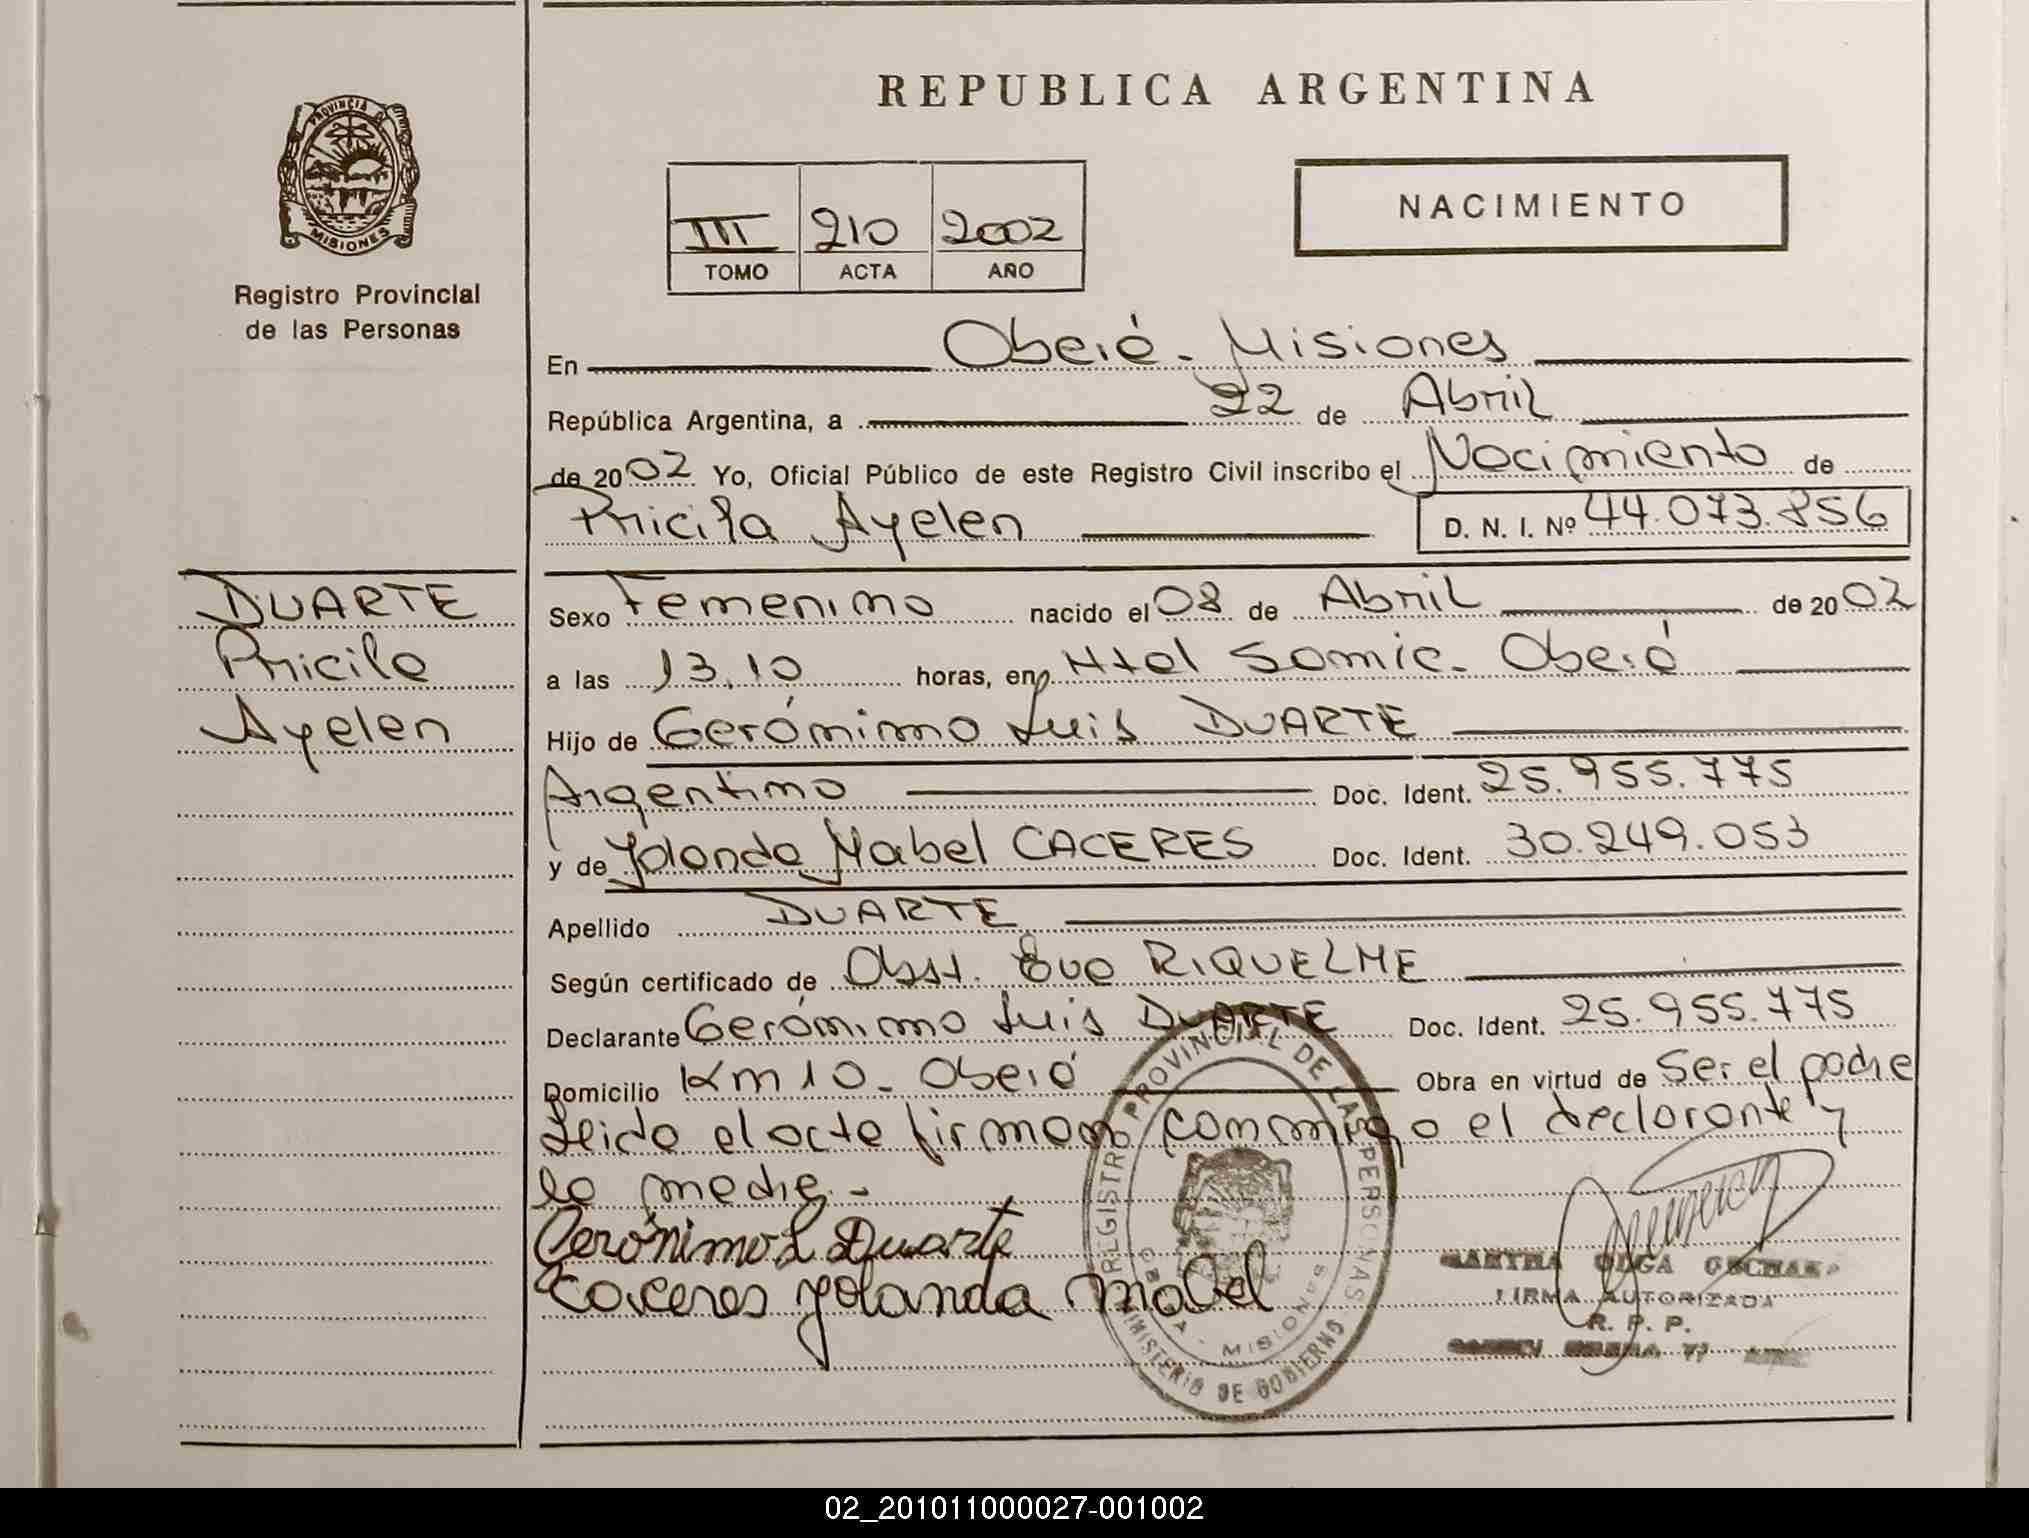 PROVINCIA DE
MISIONES
Registro Provincial
de las Personas
DUARTE
Pricila
Ayelen
REPUBLICA ARGENTINA
III 210 2002
TOMO ACTA AÑO
NACIMIENTO
En Oberá - Misiones
República Argentina, a 22 de Abril
de 2002 Yo, Oficial Público de este Registro Civil inscribo el Nacimiento de
Pricila Ayelen D. N. I. Nº 44.073.856
Sexo Femenino nacido el 08 de Abril de 2002
a las 13.10 horas, en Htal Samic - Oberá
Hijo de Gerónimo Luis DUARTE
Argentino Doc. Ident. 25.955.775
y de Yolanda Mabel CACERES Doc. Ident. 30.249.053
Apellido DUARTE
Según certificado de Obst. Eva RIQUELME
Declarante Gerónimo Luis DUARTE Doc. Ident. 25.955.775
Domicilio Km 10 - Oberá Obra en virtud de Ser el padre
Leida el acta firman conmigo el declarante y
la madre.-
Gerónimo L Duarte
Caceres Yolanda Mabel
REGISTRO PROVINCIAL DE LAS PERSONAS
MINISTERIO DE GOBIERNO
MISIONES
MARTHA OLGA
FIRMA AUTORIZADA
R. P. P.
02_201011000027-001002